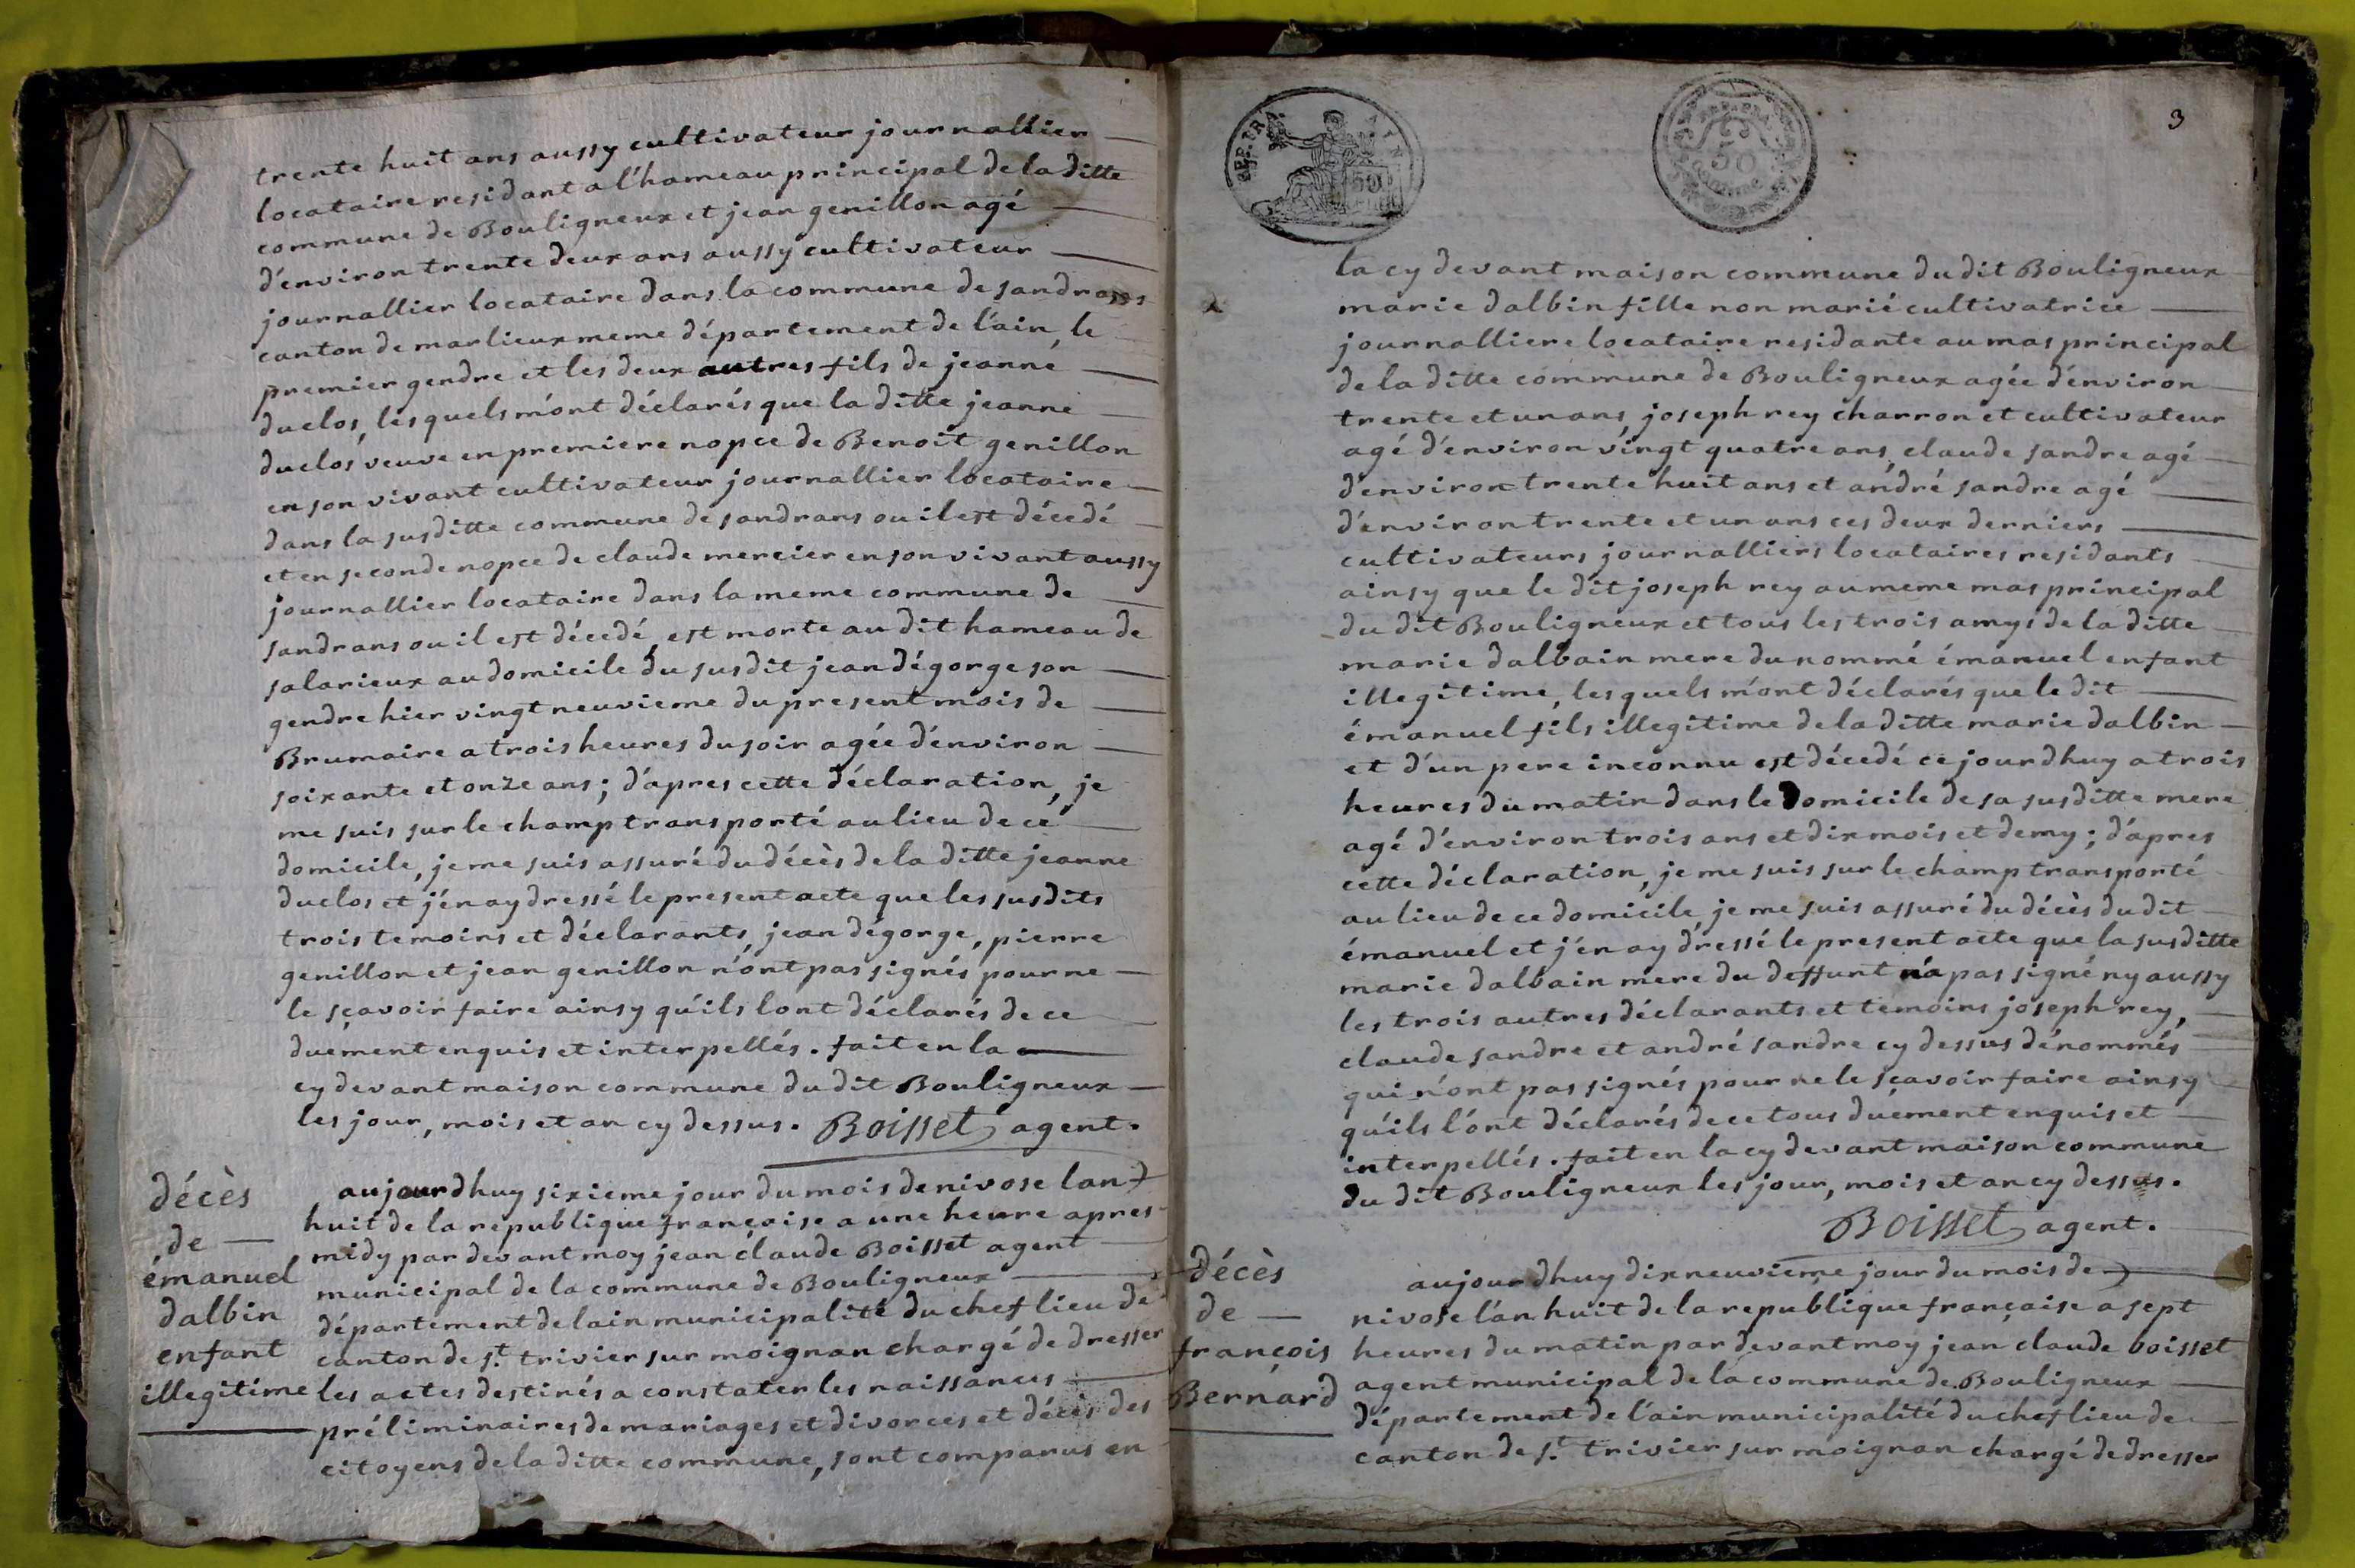 trente huit ans aussy cultivateur journallier
locataire residant a l'hameau principal de la ditte
commune de Bouligneux et jean genillon agé
d'environ trente deux ans aussy cultivateur
journallier locataire dans la commune de sandrans
canton de marlieux meme département de l'ain, le
premier gendre et les deux autres fils de jeanne
duclos, lesquels m'ont déclarés que la ditte jeanne
duclos veuve en premiere nopce de Benoit genillon
en son vivant cultivateur journallier locataire
dans la susditte commune de sandrans ou il est décedé
et en seconde nopce de claude mercier en son vivant aussy
journallier locataire dans la meme commune de
sandrans ou il est décedé, est morte au dit hameau de
salarieux au domicile du susdit jean dégorge son
gendre hier vingt neuvieme du present mois de
Brumaire a trois heures du soir agée d'environ
soixante et onze ans; d'apres cette déclaration, je
me suis sur le champ transporté au lieu de ce
domicile, je me suis assuré du décès de la ditte jeanne
duclos et j'en ay dressé le present acte que les susdits
trois temoins et déclarants, jean dégorge, pierre
genillon et jean genillon n'ont pas signés pour ne
le sçavoir faire ainsy qu'ils lont déclarés de ce
duement enquis et interpellés. fait en la
cy devant maison commune du dit Bouligneux
les jour, mois et an cy dessus. Boisset agent.
décès
de
émanuel
dalbin
enfant
illegitime
aujourdhuy sixieme jour du mois de nivose lan
huit de la republique françoise a une heure apres
midy par devant moy jean claude Boisset agent
municipal de la commune de Bouligneux
département de lain municipalité du chef lieu de
canton de st. trivier sur moignan chargé de dresser
les actes destinés a constater les naissances
préliminaires de mariages et divorces et décès des
citoyens de la ditte commune, sont comparus en
REP. FRA.
50
3
la cy devant maison commune du dit Bouligneux
marie dalbin fille non marié cultivatrice
journalliere locataire residante au mas principal
de la ditte commune de Bouligneux agée d'environ
trente et un ans, joseph rey charron et cultivateur
agé d'environ vingt quatre ans, claude sandre agé
d'environ trente huit ans et andré sandre agé
d'environ trente et un ans ces deux derniers
cultivateurs journalliers locataires residants
ainsy que le dit joseph rey au meme mas principal
du dit Bouligneux et tous les trois amys de la ditte
marie dalbain mere du nommé émanuel enfant
illegitime, lesquels m'ont déclarés que le dit
émanuel fils illegitime de la ditte marie dalbin
et d'un pere inconnu est décedé ce jourdhuy a trois
heures du matin dans le domicile de sa susditte mere
agé d'environ trois ans et dix mois et demy; d'apres
cette déclaration, je me suis sur le champ transporté
au lieu de ce domicile, je me suis assuré du décès du dit
émanuel et j'en ay dressé le present acte que la susditte
marie dalbain mere du deffunt n'a pas signé ny aussy
les trois autres déclarants et temoins joseph rey,
claude sandre et andré sandre cy dessus dénommés
qui n'ont pas signés pour ne le sçavoir faire ainsy
qu'ils l'ont déclarés de ce tous duement enquis et
interpellés. fait en la cy devant maison commune
du dit Bouligneux les jour, mois et an cy dessus.
Boisset agent.
décès
de
françois
Bernard
aujourdhuy dix neuvieme jour du mois de
nivose l'an huit de la republique françaïse a sept
heures du matin par devant moy jean claude boisset
agent municipal de la commune de Bouligneux
département de l'ain municipalité du chef lieu de
canton de st. trivier sur moignan chargé de dresser